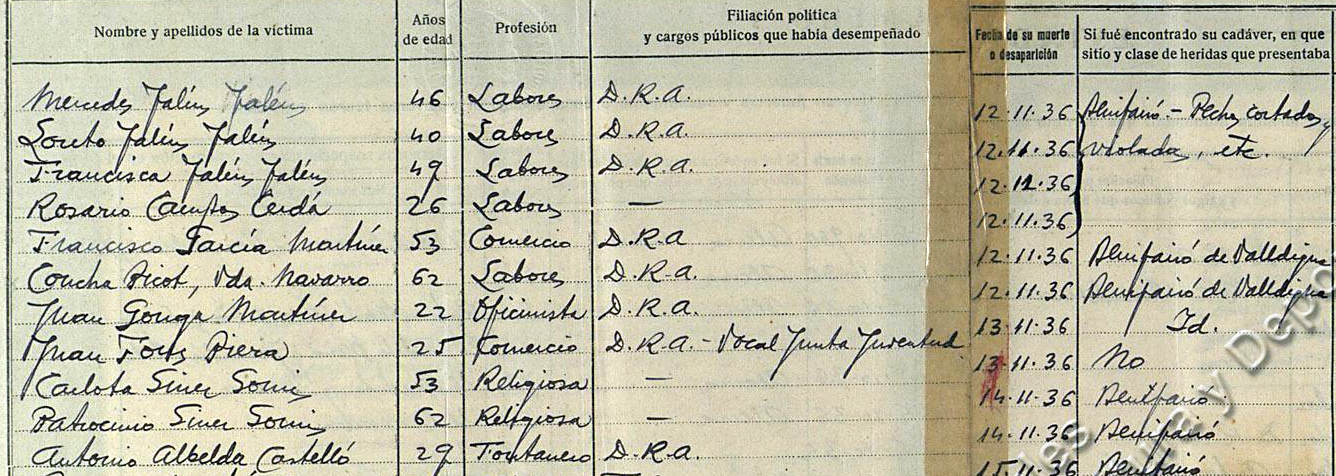 Nombre y apellidos de la víctima Años de edad Profesión Filiación política y cargos públicos que había desempeñado Fecha de su muerte o desaparición Si fué encontrado su cadáver, en que sitio y clase de heridas que presentaba
Mercedes 46 Labores D.R.A. 12.11.36 Benifairó.- Pechos cortados, y
Loreto 40 Labores D.R.A. 12.11.36 violadas, etc.
Francisca 49 Labores D.R.A. 12.11.36
Rosario Campos Cerdá 26 Labores — 12.11.36
Francisco García Martínez 53 Comercio D.R.A 12.11.36 Benifairó de Valldigna
Concha Picot, Vda. Navarro 62 Labores D.R.A. 12.11.36 Benifairó de Valldigna
Juan Gonga Martínez 22 Oficinista D.R.A. 13.11.36 Id.
Juan Piera 25 Comercio D.R.A.- Vocal Junta Juventud 13.11.36 No
Carlota Siner 53 Religiosa — 14.11.36 Benifairó.
Patrocinio Siner 62 Religiosa — 14.11.36 Benifairó
Antonio Albelda Castelló 29 Fontanero D.R.A. 15.11.36 Benifairó